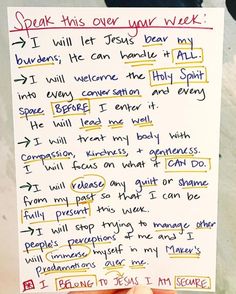 Speak this over your week:
→ I will let Jesus bear my
burdens; He can handle it ALL.
→ I will welcome the Holy Spirit
into every conversation and every
space BEFORE I enter it.
He will lead me well.
→ I will treat my body with
compassion, kindness, + gentleness.
I will focus on what it CAN DO.
→ I will release any guilt or shame
from my past so that I can be
fully present this week.
→ I will stop trying to manage other
people's perceptions of me and I
will immerse myself in my Maker's
proclamations over me.
I BELONG TO JESUS I AM SECURE.